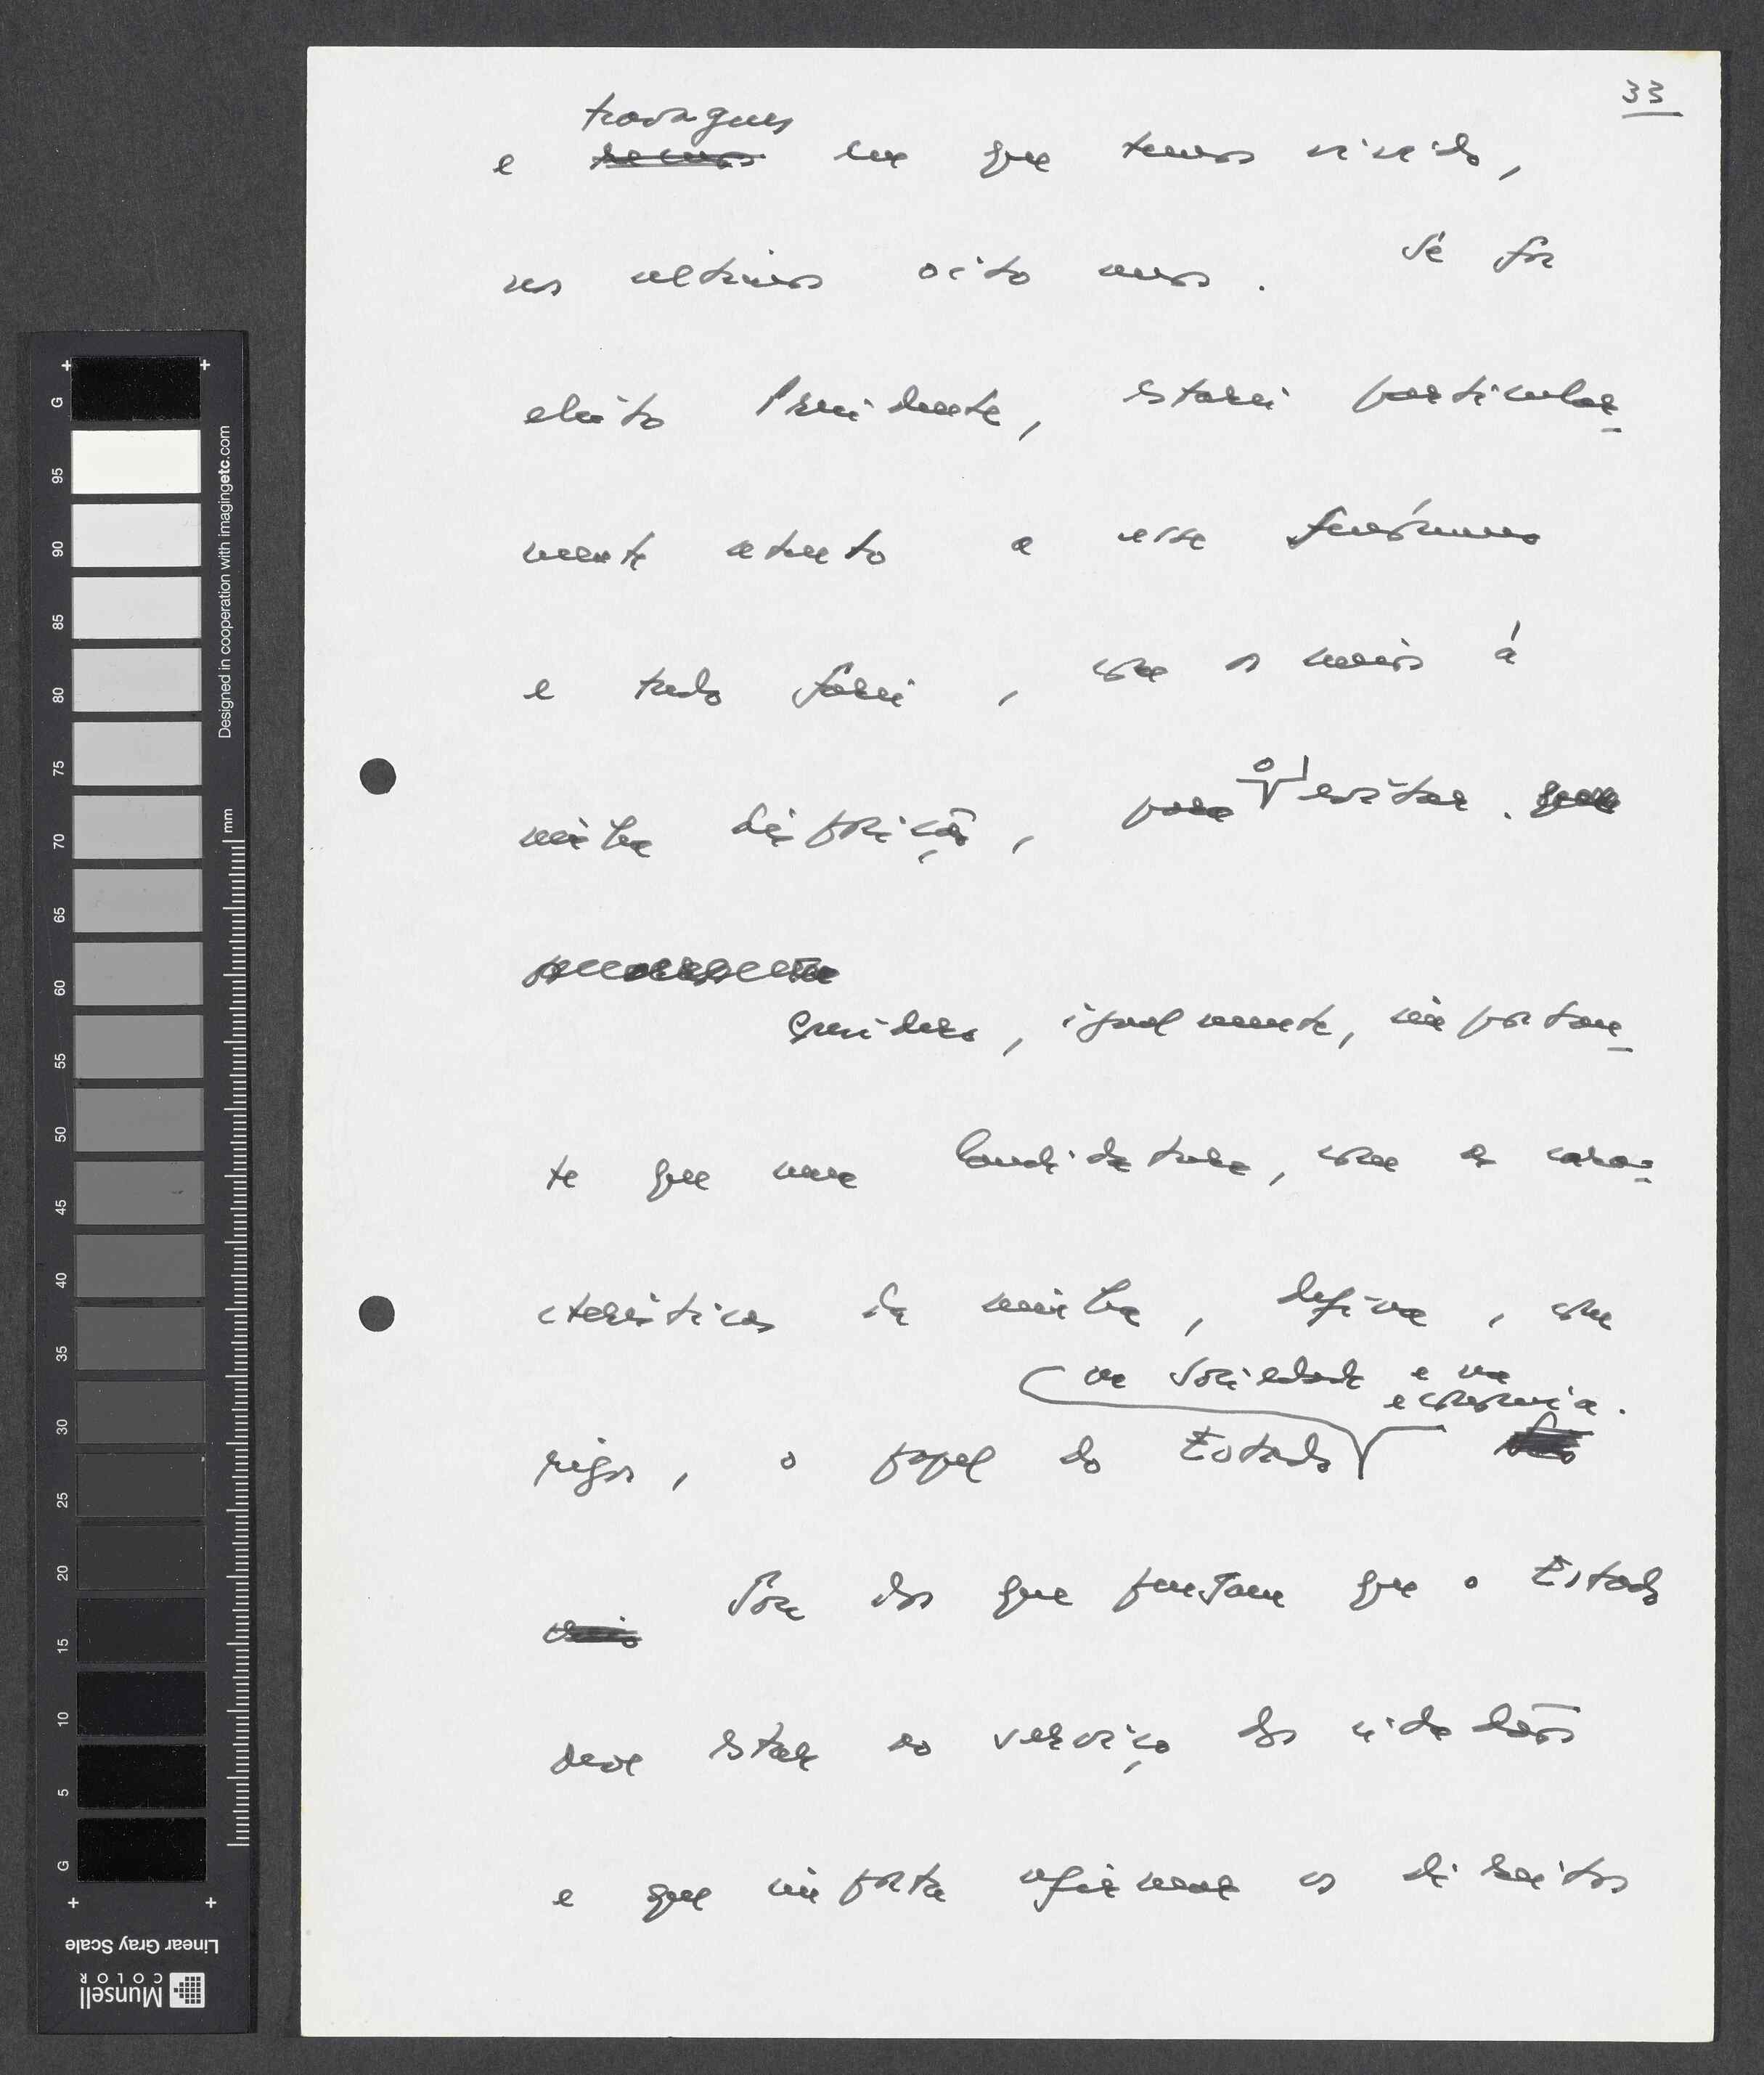 33
travagens
e recuos em que temos vivido,
nos ultimos oito anos. Se for
eleito Presidente, estarei particular_
mente atento a esse fenómeno
e tudo farei, com os meios á
minha disposição, para o evitar.
Considero, igualmente, importan_
te que uma Candidatura, com as cara_
cteristicas da minha, defina, com
na Sociedade e na
economia.
rigor, o papel do Estado
Sou dos que pensam que o Estado
deve estar ao serviço dos cidadãos
e que importa afirmar os direitos
G
95
90
85
80
75
70
65
60
55
50
45
40
35
30
25
20
15
10
5
G
mm
Designed in cooperation with imagingetc.com
Linear Gray Scale
Munsell
COLOR